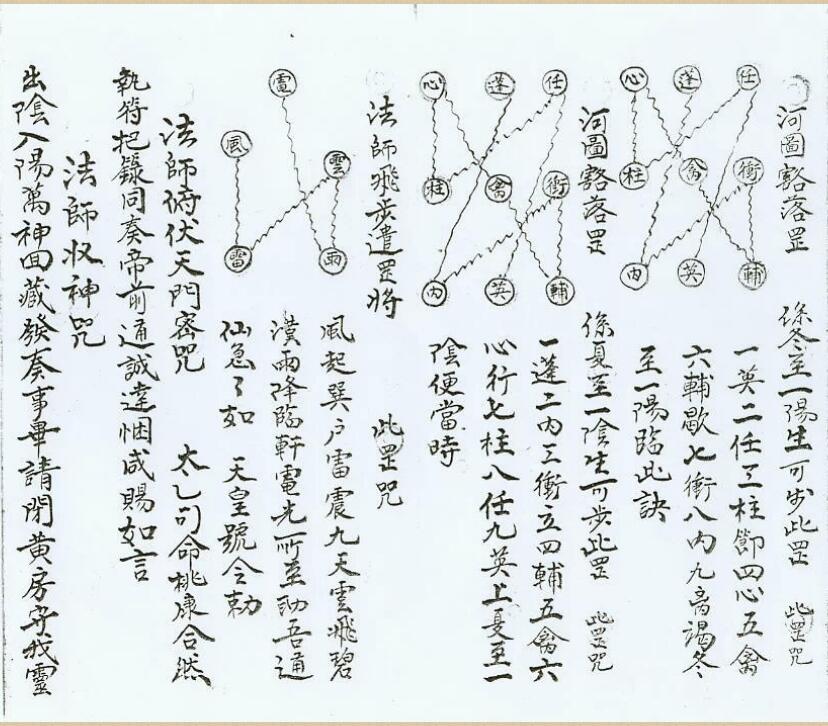 河圖豁落罡
係冬至一陽生可步此罡 此罡咒
一英二任三柱節四心五禽
六輔歇七衝八內九离謁冬
至一陽臨此訣
任 蓬 心
衝 禽 柱
輔 英 內
河圖豁落罡
係夏至一陰生可步此罡 此罡咒
一蓬二內三衝立四輔五禽六
心行七柱八任九英上夏至一
陰便當時
任 蓬 心
衝 禽 柱
輔 英 內
法師飛步遣罡將 此罡咒
風起巽户雷震九天雲飛碧
漢雨降臨軒電光所至助吾通
仙急了如 天皇號令勅
電
雲 風
雨 雷
法師俯伏天門密咒 太乙司命桃康合然
執符把籙同奏帝前通誠達悃咸賜如言
法師收神咒
出陰入陽萬神回藏發奏事畢請閉黄房守我靈